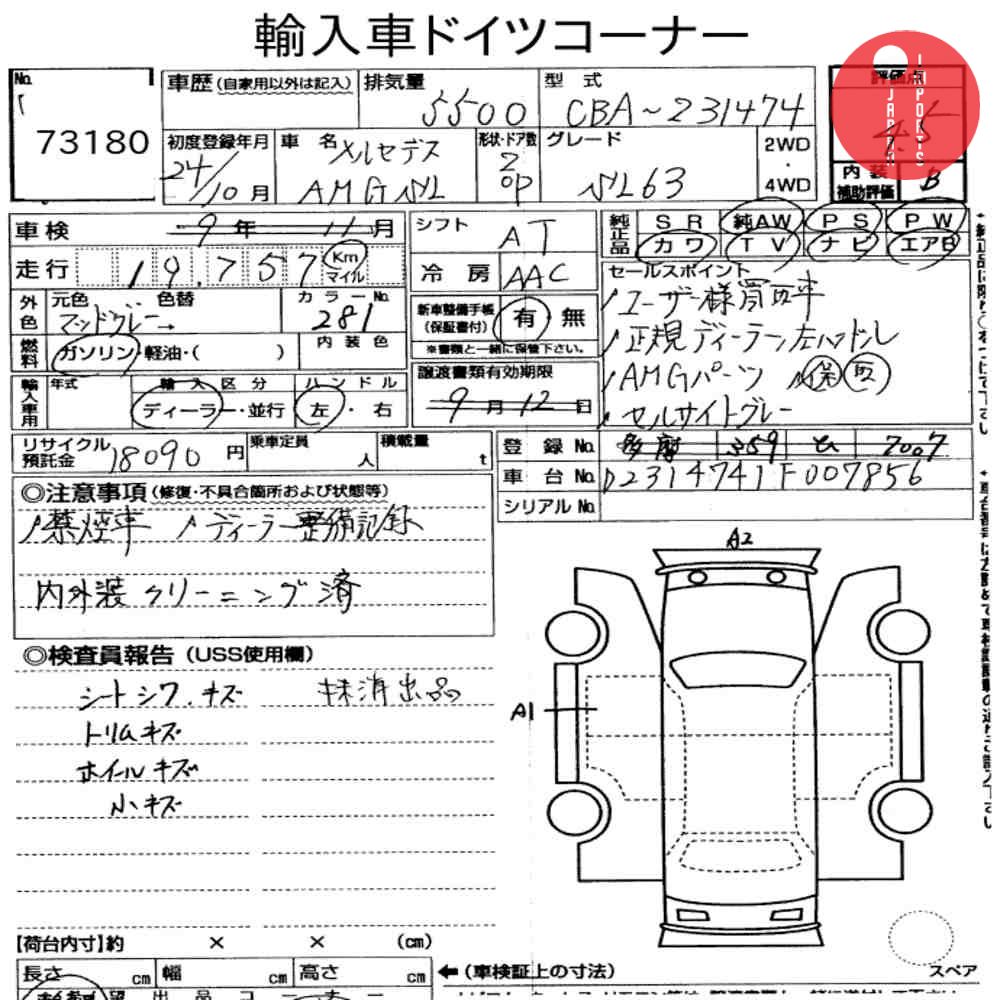 輸入車ドイツコーナー
No.
73180
車歴(自家用以外は記入)
排気量
5500
型式
CBA-231474
評価点
4.5
JAPAN IMPORTS
初度登録年月
24/10月
車名
メルセデス
AMG SL
形状・ドア数
2
OP
グレード
SL63
2WD
・
4WD
内装
補助評価
B
車検
9年 11月
シフト
AT
純正品
SR 純AW PS PW
カワ TV ナビ エアB
走行
19,757
Km
マイル
冷房
AAC
セールスポイント
ユーザー様買取車
正規ディーラー左ハンドル
AMGパーツ 保 取
セルサイトグレー
外色
元色
マットグレー→
色替
カラーNo.
281
新車整備手帳
(保証書付)
有 無
※書類と一緒に保管下さい。
燃料
ガソリン・軽油・( )
内装色
輸入車用
年式
輸入区分
ディーラー・並行
ハンドル
左・右
譲渡書類有効期限
9月12日
リサイクル
預託金
18090円
乗車定員
人
積載量
t
登録No.
多摩 359 せ 7007
車台No.
D2314741F007856
シリアルNo.
◎注意事項(修復・不具合箇所および状態等)
禁煙車 ディーラー整備記録
内外装クリーニング済
◎検査員報告(USS使用欄)
シートシワ、キズ 抹消出品
トリムキズ
ホイールキズ
小キズ
A2
A1
【荷台内寸】約 × × (cm)
長さ cm 幅 cm 高さ cm
←(車検証上の寸法)
スペア